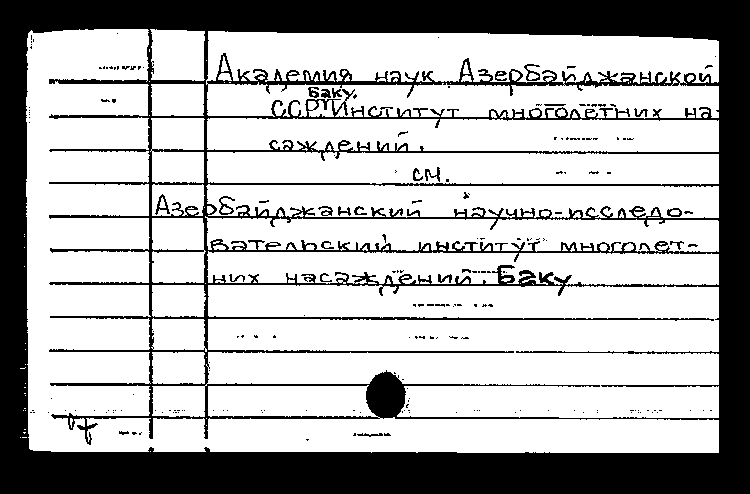 Академия наук Азербайджанской
Баку.
ССР. Институт многолетних на
саждений.
см.
Азербайджанский научно-исследо-
вательский институт многолет-
них насаждений. Баку.